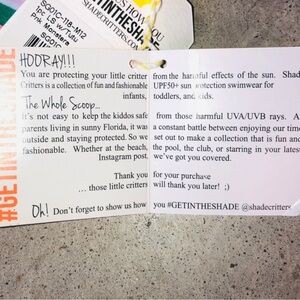 SG01C-118-M12
1pc LS w/Tutu
Pink Monsters
S HOW YOU
GETINTHESHADE
SHADECRITTERS.COM
#GETINTHESHADE
HOORAY!!!
You are protecting your little critter from the harmful effects of the sun. Shad
Critters is a collection of fashionable UPF50+ sun protection swimwear for
infants, toddlers, and kids.
The Whole Scoop...
It's not easy to keep the kiddos safe from those harmful UVA/UVB rays. A
parents living in sunny Florida, it was a constant battle between enjoying our time
outside and staying protected. So we set out to make a collection that is fun and
fashionable. Whether at the beach, the pool, the club, or starring in your latest
Instagram post, we've got you covered.
Thank you for your purchase
... those little critters will thank you later! ;)
Oh! Don't forget to show us how you #GETINTHESHADE @shadecritters